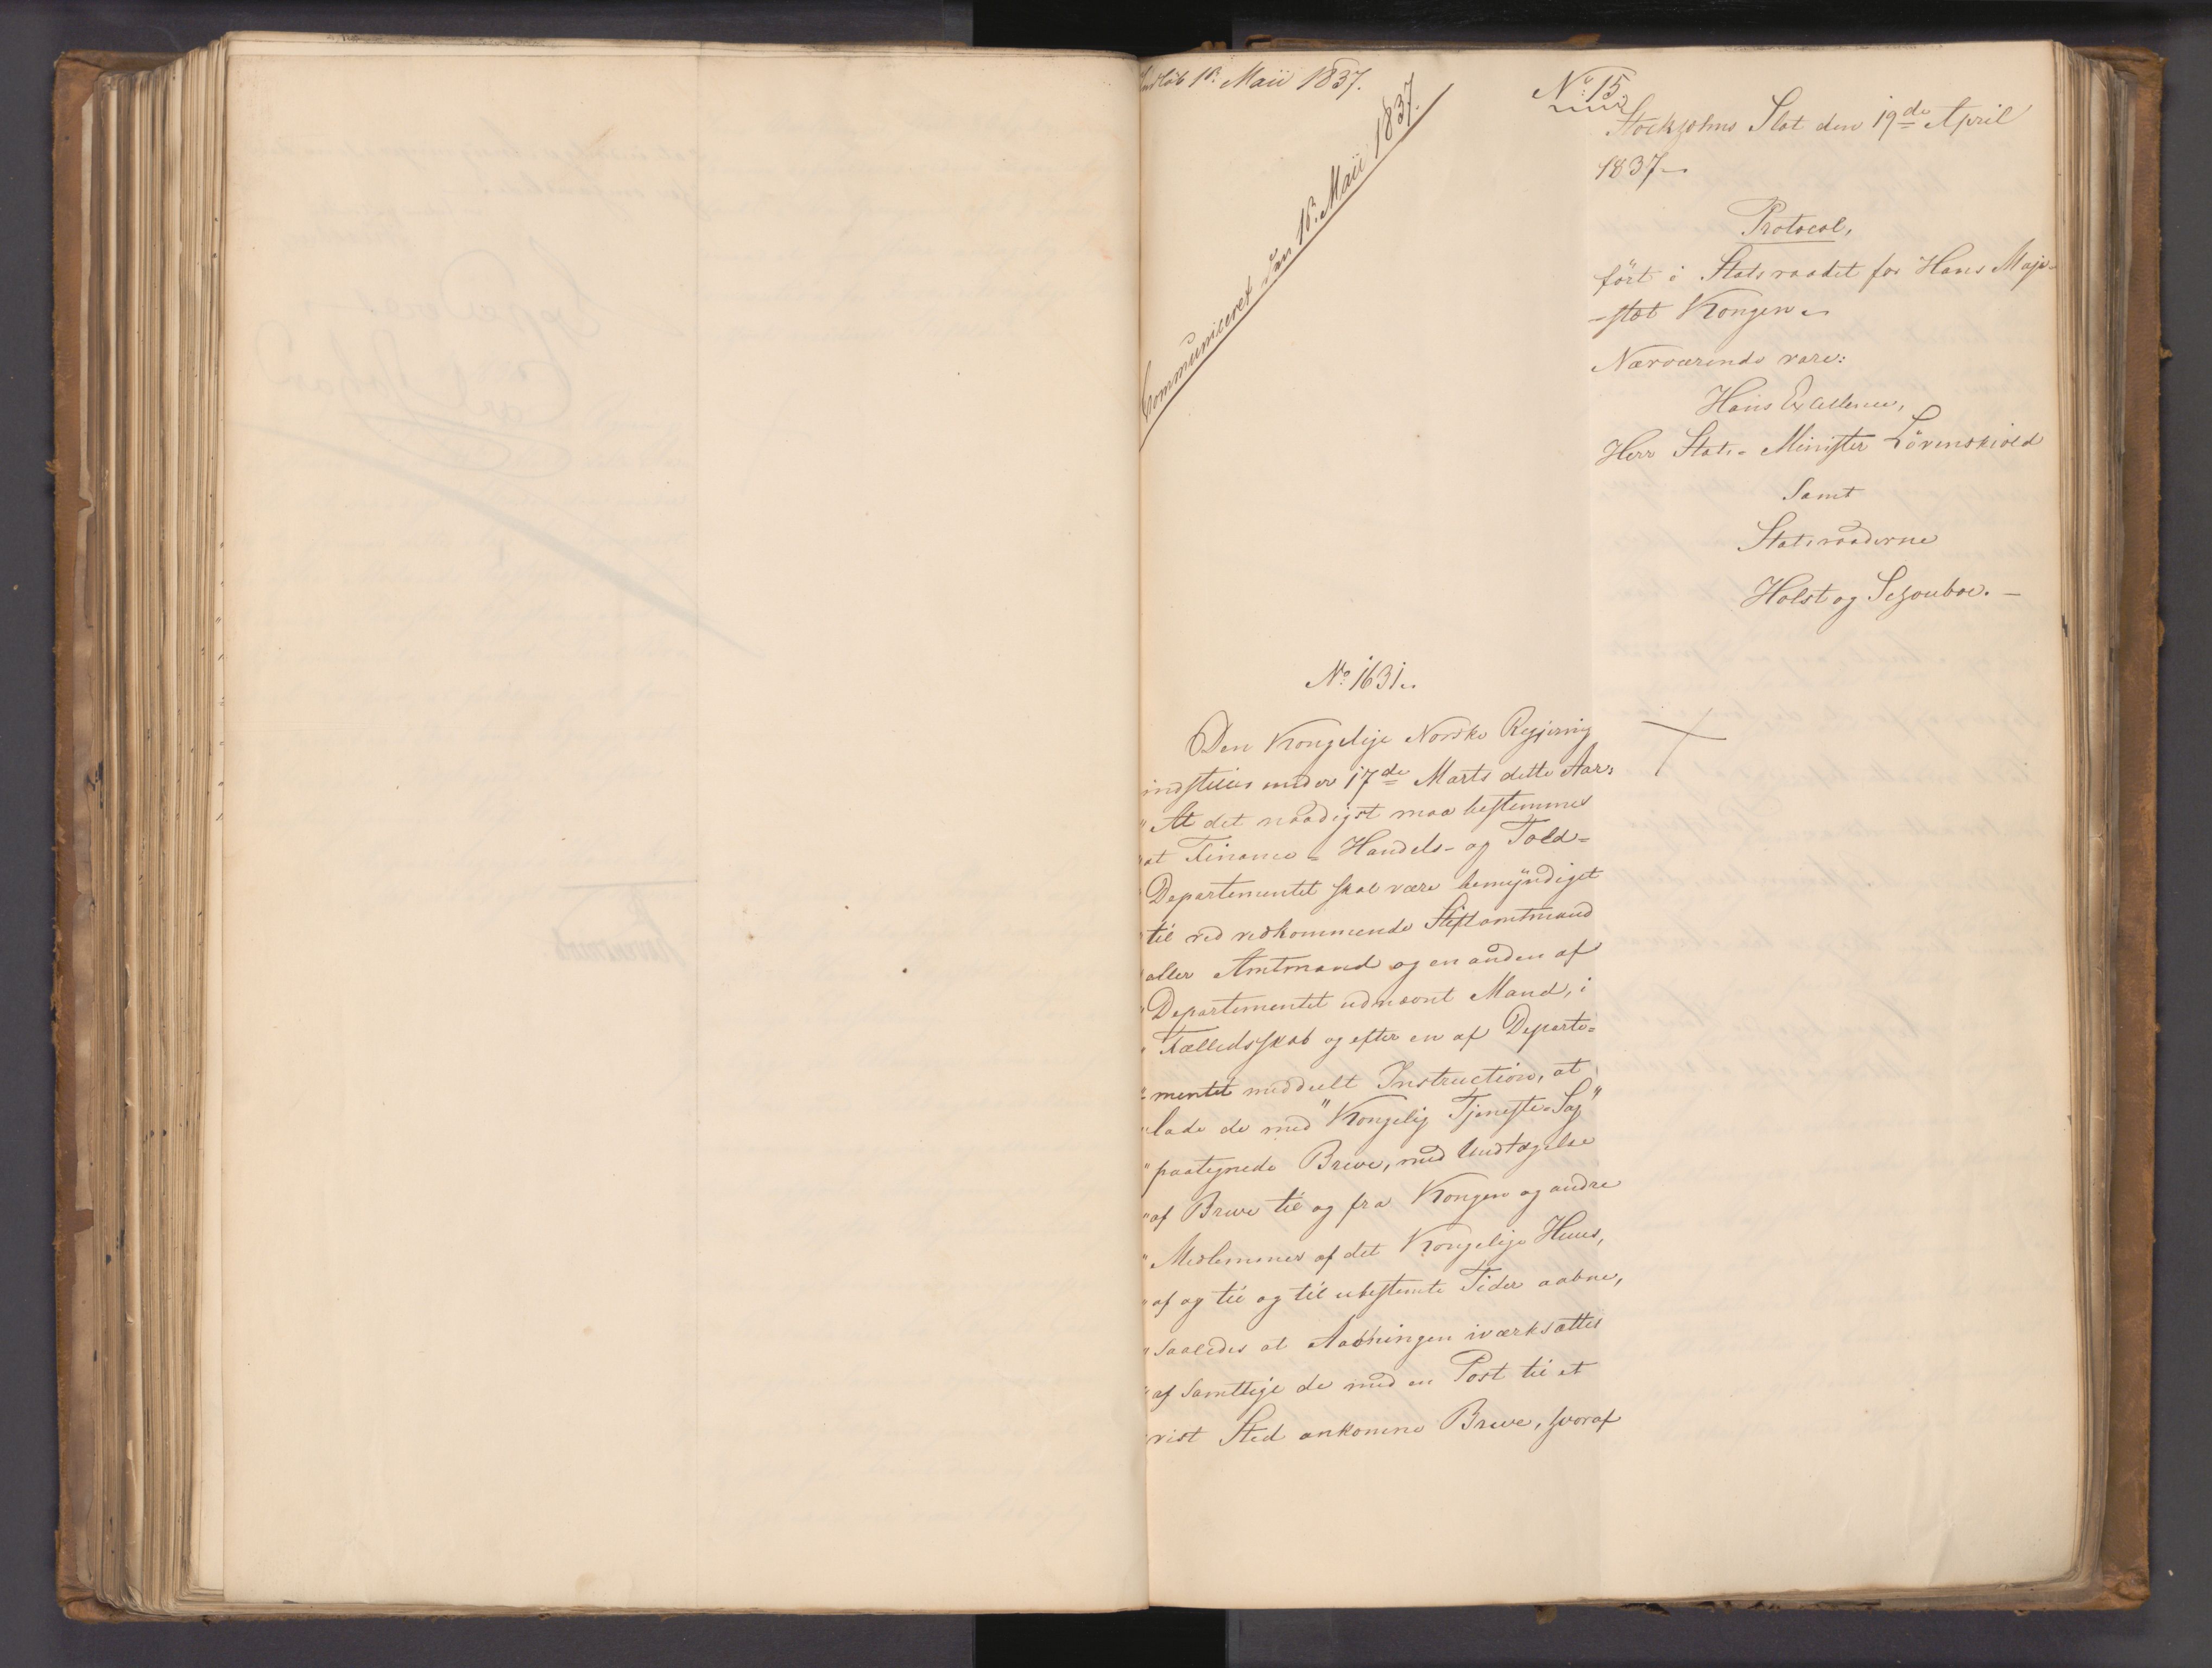 1ste Maii 1837.
Communiceret den 1ste Maii 1837.
No: 15
Stockholms Slot den 19de April
1837
Protocol,
ført i Statsraadet for Hans Maje-
-stæt Kongen
Nærværende vare:
Hans Excellence,
Herr Stats-Minister Løvenskiold
Samt
Statsraaderne
Holst og Schouboe. –
No: 1631.
Den Kongelige Norske Regjering
indstiller under 17de Marts dette Aar:
"At det naadigst maa bestemmes
"at Finance- Handels- og Told-
"Departementet skal være bemyndiget
"til ved vedkommende Stiftamtmand
"eller Amtmand og en anden af
"Departementet udnævnt Mand, i
"Fælledsskab og efter en af Departe-
"mentet meddeelt Instruction, at
"lade de med "Kongelig Tjeneste-Sag"
"paategnede Breve, med Undtagelse
"af Breve til og fra Kongen og andre
"Medlemmer af det Kongelige Huus,
"af og til og til ubestemte Tider aabne,
"saaledes at Aabningen iværksættes
"af samtlige de med en Post til et
vist Sted ankomne Breve, hvoraf